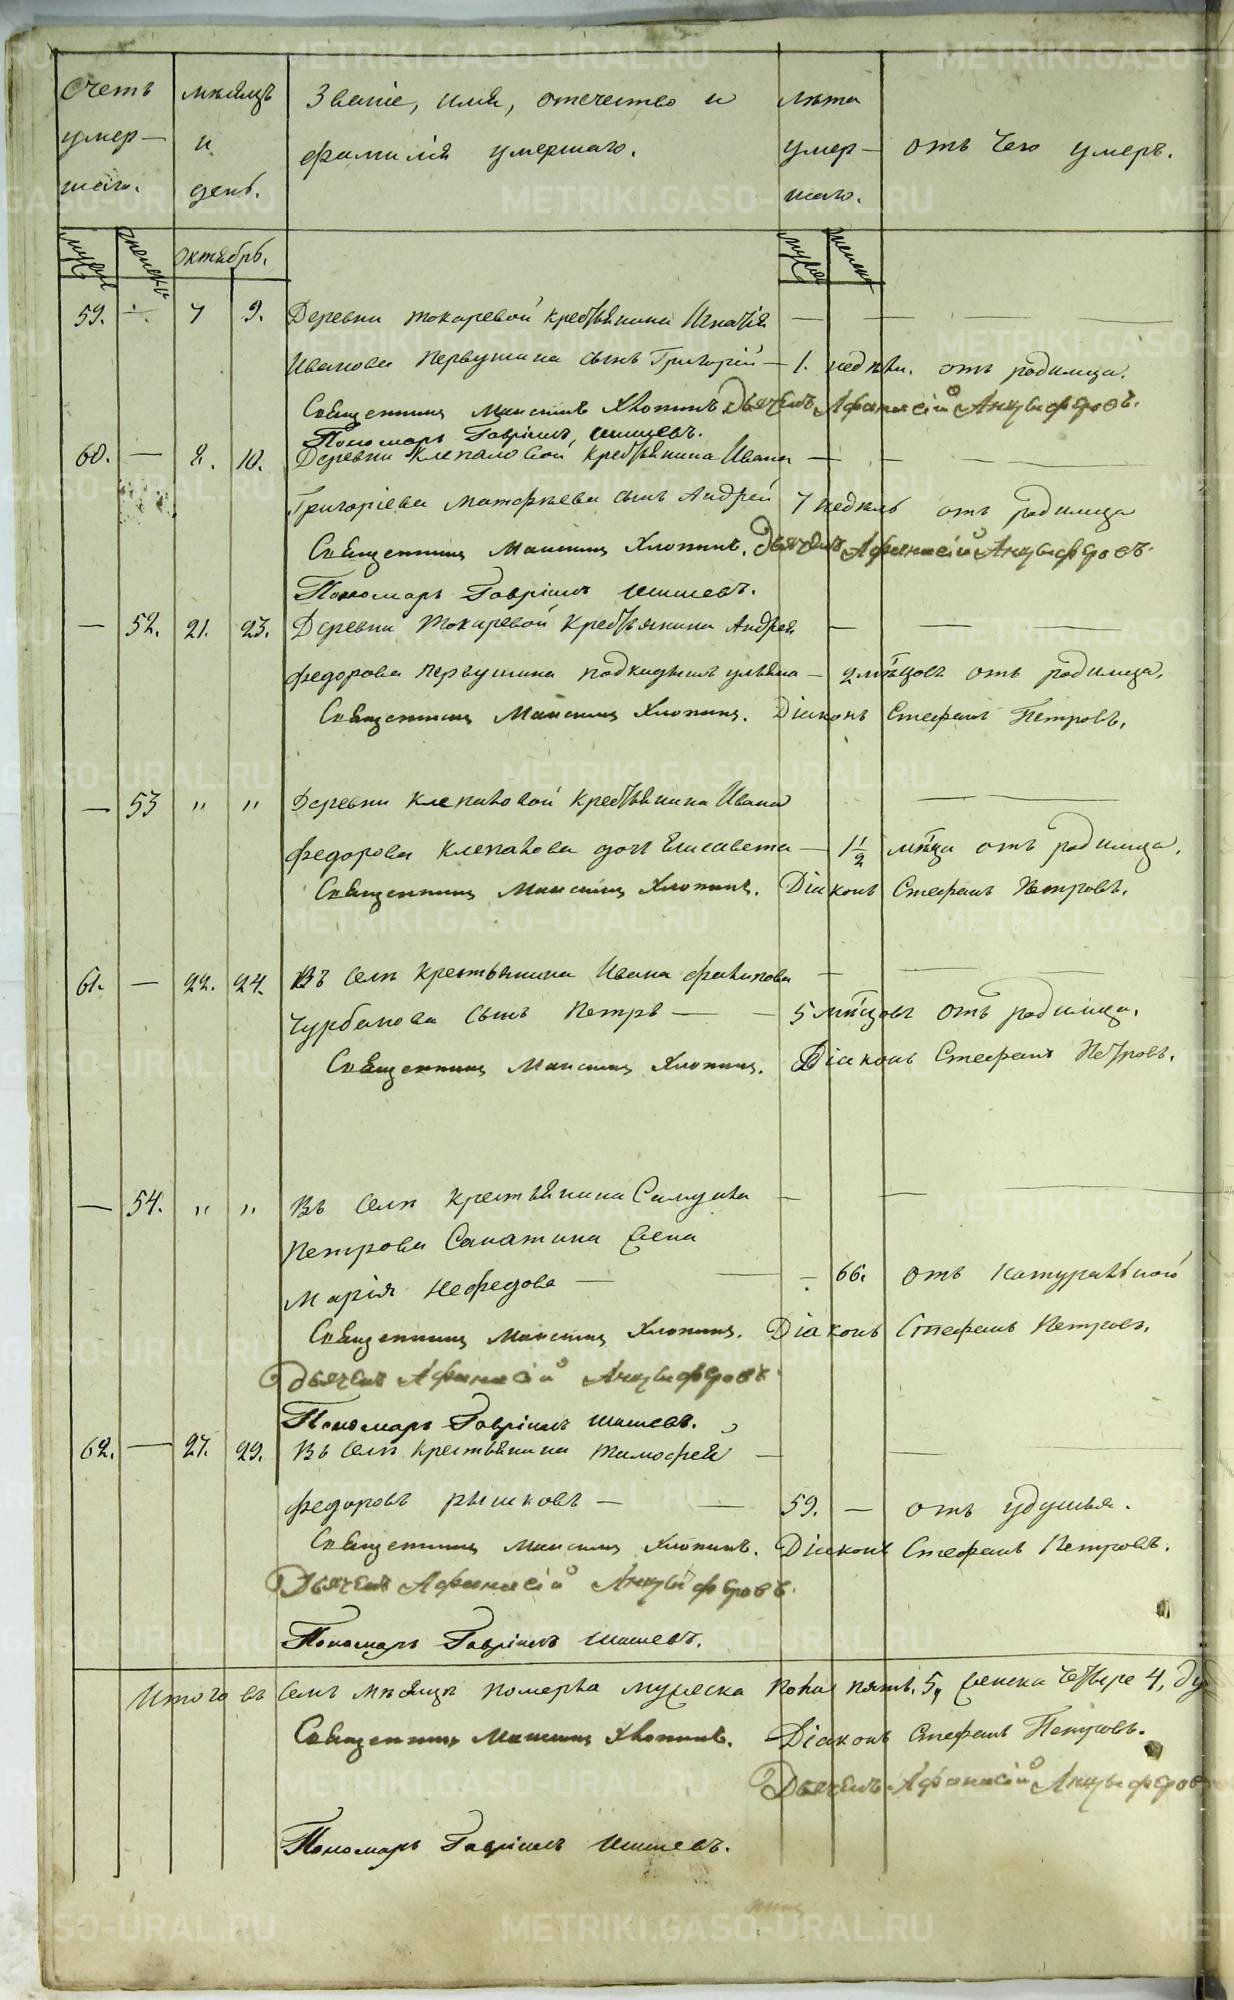 Счетъ умер-шаго.
мѣсяцъ и день.
Званіе, имя, отечество и
фамилія умершаго.
лѣта умер-шаго.
отъ чего умеръ.
муж. женска октябрь. мужеска женска
59. — 7 9. Деревни Токаревой крестьянина Игнатія
Иванова Первушина сынъ Григорій — 1. недѣли. отъ родимца.
Священникъ Максимъ Хлопинъ. Дьячекъ Афанасій Анцыферовъ.
Пономарь Гавріилъ Шишевъ.
60. — 8. 10. Деревни Клепаловой крестьянина Ивана
Григоріева Матфѣева сынъ Андрей 7 недѣль отъ родимца
Священникъ Максимъ Хлопинъ. Дьячекъ Афанасій Анцыферовъ.
Пономарь Гавріилъ Шишевъ.
— 52. 21. 23. Деревни Токаревой крестьянина Андрея
Федорова Первушина подкидышъ ульяна — 2 мѣцовъ отъ родимца,
Священникъ Максимъ Хлопинъ. Діаконъ Стефанъ Петровъ.
— 53 " " Деревни Клепаловой крестьянина Ивана
Федорова Клепалова дочь Елисавета — 1 1/2 мѣца отъ родимца.
Священникъ Максимъ Хлопинъ. Діаконъ Стефанъ Петровъ.
61. — 22. 24. Въ селѣ крестьянина Ивана Филипова
Чурбанова сынъ Петръ — — 5 мѣцовъ отъ родимца.
Священникъ Максимъ Хлопинъ. Діаконъ Стефанъ Петровъ.
— 54. " " Въ селѣ крестьянина Самуила
Петрова жена
Марія Нефедова — — 66. отъ натуральной
Священникъ Максимъ Хлопинъ. Діаконъ Стефанъ Петровъ.
Дьячекъ Афанасій Анцыферовъ.
Пономарь Гавріилъ Шишевъ.
62. — 27. 29. Въ селѣ крестьянина Тимофей
Федоровъ Рышковъ — — 59. — отъ удушья.
Священникъ Максимъ Хлопинъ. Діаконъ Стефанъ Петровъ.
Дьячекъ Афанасій Анцыферовъ.
Пономарь Гавріилъ Шишевъ.
Итого въ семъ мѣсяцѣ померла мужеска пола пять. 5, женска четыре 4,
Священникъ Максимъ Хлопинъ. Діаконъ Стефанъ Петровъ.
Дьячекъ Афанасій Анцыферовъ
Пономарь Гавріилъ Шишевъ.
METRIKI.GASO-URAL.RU